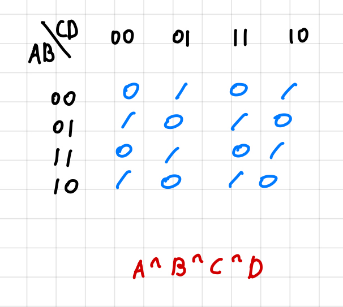 CD
AB
00 01 11 10
00 0 1 0 1
01 1 0 1 0
11 0 1 0 1
10 1 0 1 0
A^B^C^D